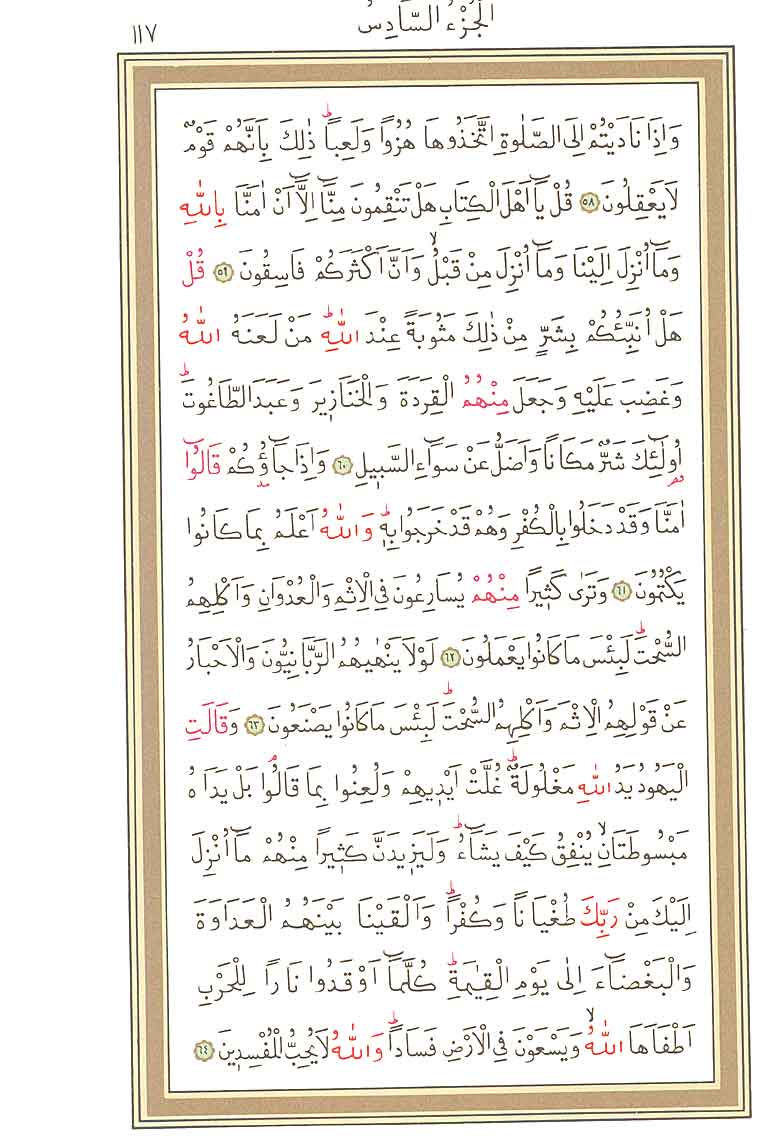 الجُزْءُ السَّادِسُ
١١٧
وَاِذَا نَادَيْتُمْ اِلَى الصَّلٰوةِ اتَّخَذُوهَا هُزُواً وَلَعِباًۜ ذٰلِكَ بِاَنَّهُمْ قَوْمٌ
لَا يَعْقِلُونَ ﴿٥٨﴾ قُلْ يَٓا اَهْلَ الْكِتَابِ هَلْ تَنْقِمُونَ مِنَّٓا اِلَّٓا اَنْ اٰمَنَّا بِاللّٰهِ
وَمَٓا اُنْزِلَ اِلَيْنَا وَمَٓا اُنْزِلَ مِنْ قَبْلُۙ وَاَنَّ اَكْثَرَكُمْ فَاسِقُونَ ﴿٥٩﴾ قُلْ
هَلْ اُنَبِّئُكُمْ بِشَرٍّ مِنْ ذٰلِكَ مَثُوبَةً عِنْدَ اللّٰهِۜ مَنْ لَعَنَهُ اللّٰهُ
وَغَضِبَ عَلَيْهِ وَجَعَلَ مِنْهُمُ الْقِرَدَةَ وَالْخَنَازِيرَ وَعَبَدَ الطَّاغُوتَۜ
اُو۬لٰٓئِكَ شَرٌّ مَكَاناً وَاَضَلُّ عَنْ سَوَٓاءِ السَّبِيلِ ﴿٦٠﴾ وَاِذَا جَٓاؤُ۫كُمْ قَالُٓوا
اٰمَنَّا وَقَدْ دَخَلُوا بِالْكُفْرِ وَهُمْ قَدْ خَرَجُوا بِه۪ۜ وَاللّٰهُ اَعْلَمُ بِمَا كَانُوا
يَكْتُمُونَ ﴿٦١﴾ وَتَرٰى كَث۪يراً مِنْهُمْ يُسَارِعُونَ فِي الْاِثْمِ وَالْعُدْوَانِ وَاَكْلِهِمُ
السُّحْتَۜ لَبِئْسَ مَا كَانُوا يَعْمَلُونَ ﴿٦٢﴾ لَوْلَا يَنْهٰيهُمُ الرَّبَّانِيُّونَ وَالْاَحْبَارُ
عَنْ قَوْلِهِمُ الْاِثْمَ وَاَكْلِهِمُ السُّحْتَۜ لَبِئْسَ مَا كَانُوا يَصْنَعُونَ ﴿٦٣﴾ وَقَالَتِ
الْيَهُودُ يَدُ اللّٰهِ مَغْلُولَةٌۜ غُلَّتْ اَيْد۪يهِمْ وَلُعِنُوا بِمَا قَالُواۢ بَلْ يَدَاهُ
مَبْسُوطَتَانِۙ يُنْفِقُ كَيْفَ يَشَٓاءُۜ وَلَيَز۪يدَنَّ كَث۪يراً مِنْهُمْ مَٓا اُنْزِلَ
اِلَيْكَ مِنْ رَبِّكَ طُغْيَاناً وَكُفْراًۜ وَاَلْقَيْنَا بَيْنَهُمُ الْعَدَاوَةَ
وَالْبَغْضَٓاءَ اِلٰى يَوْمِ الْقِيٰمَةِۜ كُلَّمَٓا اَوْقَدُوا نَاراً لِلْحَرْبِ
اَطْفَاَهَا اللّٰهُۙ وَيَسْعَوْنَ فِي الْاَرْضِ فَسَاداًۜ وَاللّٰهُ لَا يُحِبُّ الْمُفْسِد۪ينَ ﴿٦٤﴾